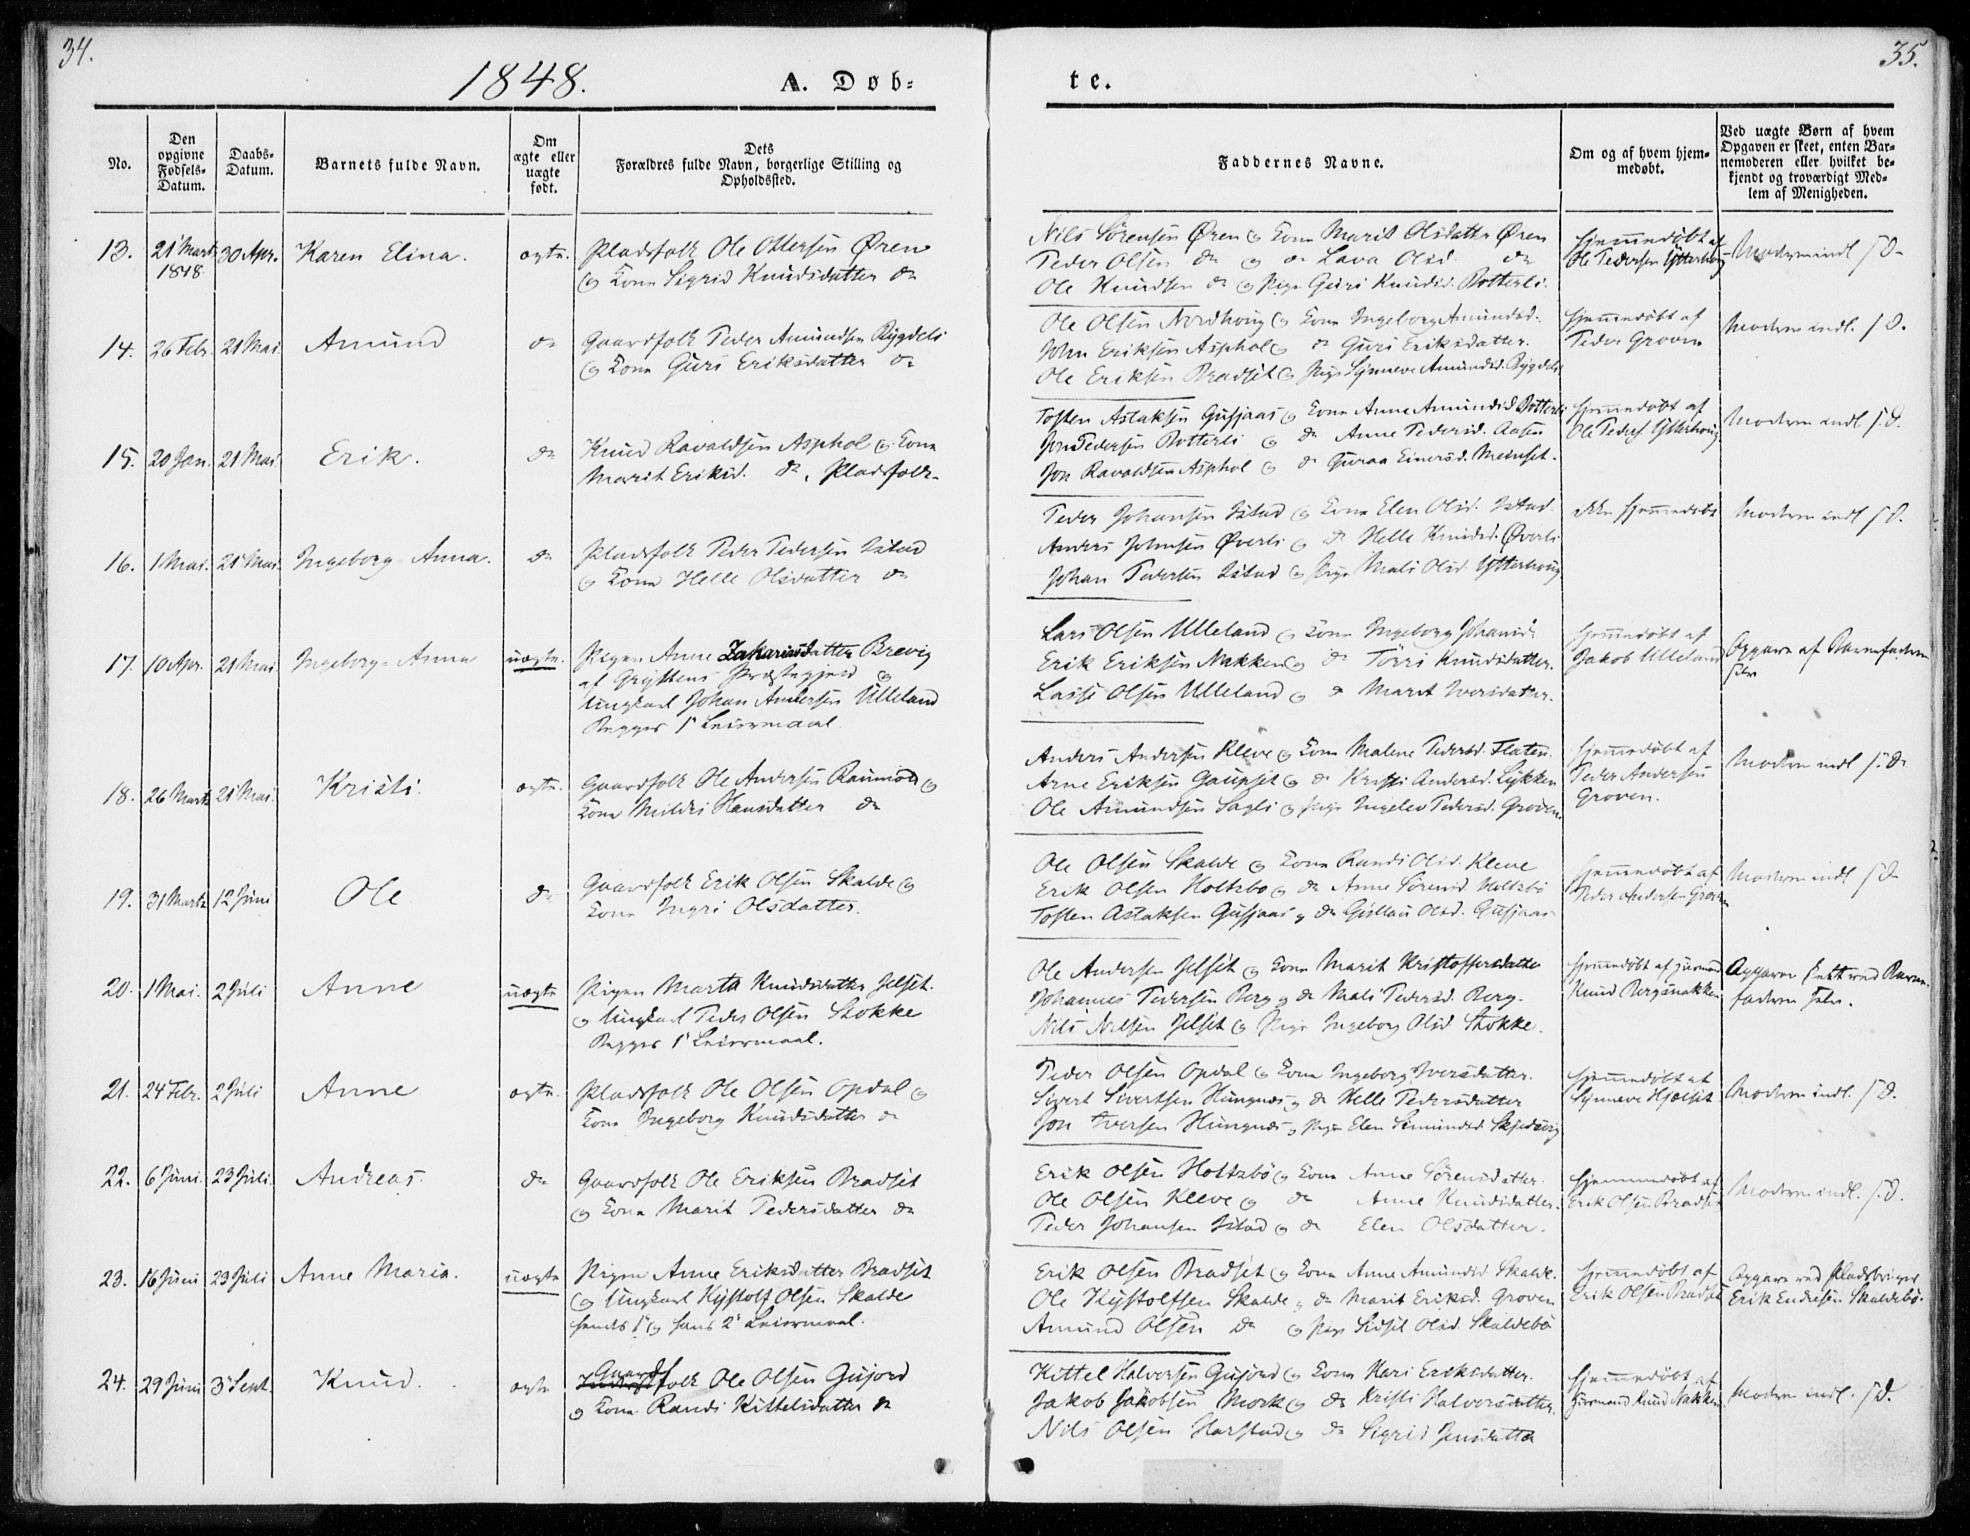 34.
35.
1848.
A. Døb-
te.
No.
Den opgivne Fødsels-Datum.
Daabs-Datum.
Barnets fulde Navn.
Om ægte eller uægte født.
Dets
Forældres fulde Navn, borgerlige Stilling og
Opholdssted.
Faddernes Navne.
Om og af hvem hjem-
medøbt.
Ved uægte Børn af hvem
Opgaven er skeet, enten Bar-
nemoderen eller hvilket be-
kjendt og troværdigt Med-
lem af Menigheden.
13. 21 Marts 1848 30 Apr. Karen Elina. ægte.
Pladsfolk Ole Ottersen Øren
og Kone Sigrid Knudsdatter do
Nils Sørensen Øren og Kone Marit Olsdatter Øren
Peder Olsen do og do Lava Olsd. do
Ole Knudsen do og Pige Guri Knudsd. Botterli.
Hjemmedøbt af
Ole Pedersen Ytterhoug
Moderen indl.
14. 26 Febr. 21 Mai. Amund do
Gaardfolk Peder Amundsen Bygdeli
og Kone Guri Eriksdatter do
Ole Olsen Nordhoug og Kone Ingeborg Amundsd.
John Eriksen Asphol og do Guri Eriksdatter.
Ole Eriksen Bradsit og Pige Synneve Amundsd. Bygdeli
Hjemmedøbt af
Peder Groven
Moderen indl.
15. 20 Jan. 21 Mai. Erik. do
Knud Ravaldsen Asphol og Kone
Marit Eriksd. do, Pladsfolk.
Tosten Aslaksen Gusjaas og Kone Anne Amundsd Botterli
Jon Pedersen Botterli og do Anne Pedersd. Aasen
Jon Ravaldsen Asphol og do Guraa Einersd. Meinset.
Hjemmedøbt af
Ole Peders. Ytterhoug
Moderen indl.
16. 1 Mai. 21 Mai. Ingeborg Anna. do
Pladsfolk Peder Pedersen Istad
og Kone Helle Olsdatter do
Peder Johansen Istad og Kone Elen Olsd. Istad.
Anders Johnsen Øverli og do Helle Knudsd. Øverli
Johan Pedersen Istad og Pige Mali Olsd Ytterhoug
ikke hjemmedøbt
Moderen indl
17. 10 Apr. 21 Mai. Ingeborg Anna uægte.
Pigen Anne Zakariasdatter Brevig
af Gryttens Præstegjeld og
Ungkarl Johan Andersen Ulleland
Begges 1ste Leiermaal.
Lars Olsen Ulleland og Kone Ingeborg Johansd.
Erik Eriksen Nakken og do Törri Knudsdatter.
Lasse Olsen Ulleland og do Marit Iversdatter.
Hjemmedøbt af
Jakob Ulleland
Opgave af Barnefaderen
selv
18. 26 Marts 21 Mai. Kristi. ægte.
Gaardfolk Ole Andersen Raumod og
Kone Mildri Hansdatter do
Anders Andersen Kleve og Kone Malene Pedersd. Flaten.
Arne Eriksen Gaupset og do Kristi Andersd. Lykken
Ole Amundsen Sagli og Pige Ingelev Pedersd. Groven
Hjemmedøbt af
Peder Andersen
Groven.
Moderen indl
19. 31 Marts 12 Juni Ole do
Gaardfolk Erik Olsen Skalde og
Kone Ingri Olsdatter.
Ole Olsen Skalde og Kone Randi Olsd. Kleve
Erik Olsen Holtsbo og do Anne Sørensd. Holtsbø
Tosten Aslaksen Gusjaas og do Gjøllau Olsd. Gusjaas
Hjemmedøbt af
Peder Andersen Groven
Moderen indl
20. 1 Mai. 2 Juli Anne uægte
Pigen Martha Knudsdatter Jelset.
og Ungkarl Peder Olsen Stokke
Begges 1ste Leiermaal.
Ole Andersen Jelset og Kone Marit Kristoffersdatter
Johannes Pedersen Berg og do Mali Pedersd. Berg.
Nils Nilsen Jelset og Pige Ingeborg Olsd Stokke.
Hjemmedøbt af
Knud Bergsnakken
Opgaven skett ved Barne-
faderen selv.
21. 24 Febr. 2 Juli Anne ægte.
Pladsfolk Ole Olsen Opdal og
Kone Ingeborg Knudsdatter do
Peder Olsen Opdal og Kone Ingeborg Iversdatter.
Sivert Sivertsen Hungnes og do Helle Pedersdatter
Jon Iversen Hungnes og Pige Elen Semundsd. Skjedsvig
Hjemmedøbt af
Synneve Hjelset
Moderen indl.
22. 6 Juni. 23 Juli. Andreas. do
Gaardfolk Ole Eriksen Bradsit
og Kone Marit Pedersdatter do
Erik Olsen Holtsbø og Kone Anne Sörensdatter.
Ole Olsen Kleve og do Anne Knudsdatter.
Peder Johansen Istad og do Elen Olsdatter.
Hjemmedøbt af
Erik Olsen Bradsit
Moderen indl.
23. 16 Juni 23 Juli Anne Maria. uægte
Pigen Anne Eriksdatter Bradsit
og Ungkarl Kystolf Olsen Skalde
hendes 1ste og hans 2det Leiermaal.
Erik Olsen Bradsit og Kone Anne Amundsd Skalde.
Ole Kystolfsen Skalde og do Marit Eriksd. Groven
Amund Olsen do og Pige Sidsel Olsd. Skaldebø
Hjemmedøbt af
Erik Olsen Bradsit
Opgave ved Pladsbruger
Erik Endresen Skaldebø.
24. 29 Juni 3 Sept. Knud. ægte
Gaardfolk Ole Olsen Gujord
og Kone Randi Kittelsdatter do
Kittel Halvorsen Gujord og Kone Kari Eriksdatter.
Jakob Jakobsen Mork og do Kristi Halvorsdatter.
Nils Olsen Harstad og do Sigrid Jensdatter
Hjemmedøbt af
Knud Nakken
Moderen indl.